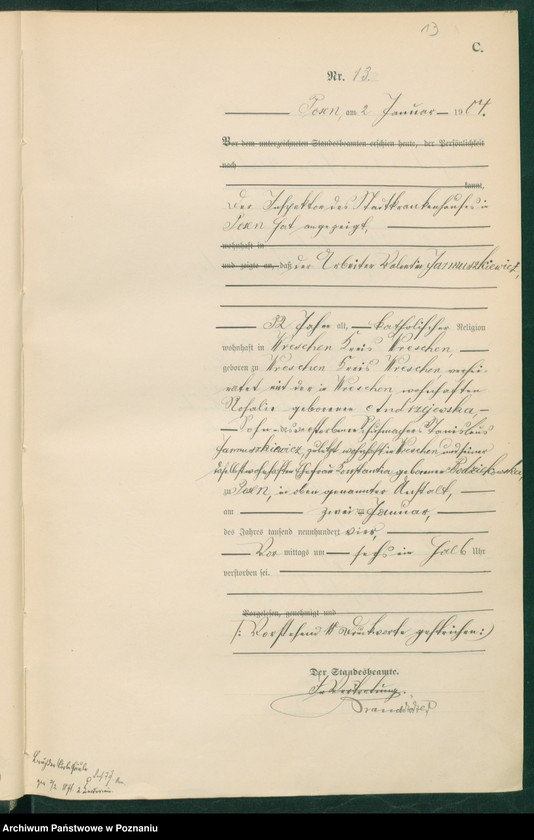 13
C.
Nr. 13.
Posen, am 2 Januar 1904.
Vor dem unterzeichneten Standesbeamten erschien heute, der Persönlichkeit
nach
kannt,
Der Inspektor des Stadtkrankenhauses in
Posen hat angezeigt,
wohnhaft in
und zeigte an, daß der Arbeiter Valentin Januszkiewicz,
32 Jahre alt, katholischer Religion
wohnhaft in Wreschen Kreis Wreschen,
geboren zu Wreschen Kreis Wreschen, verhei-
ratet mit der in Wreschen wohnhaften
Rosalie geborenen Andrzejewska,
Sohn des verstorbenen Schuhmachers Stanislaus
Januszkiewicz, zuletzt wohnhaft in Wreschen und seiner
daselbst wohnhaften Ehefrau Konstantia geborener
zu Posen, in oben genannter Anstalt,
am zweiten Januar,
des Jahres tausend neunhundert vier,
Vor mittags um sechs ein halb Uhr
verstorben sei.
Vorgelesen, genehmigt und
(: Vorstehend Druckworte gestrichen :)
Der Standesbeamte.
In Vertretung.
Archiwum Państwowe w Poznaniu